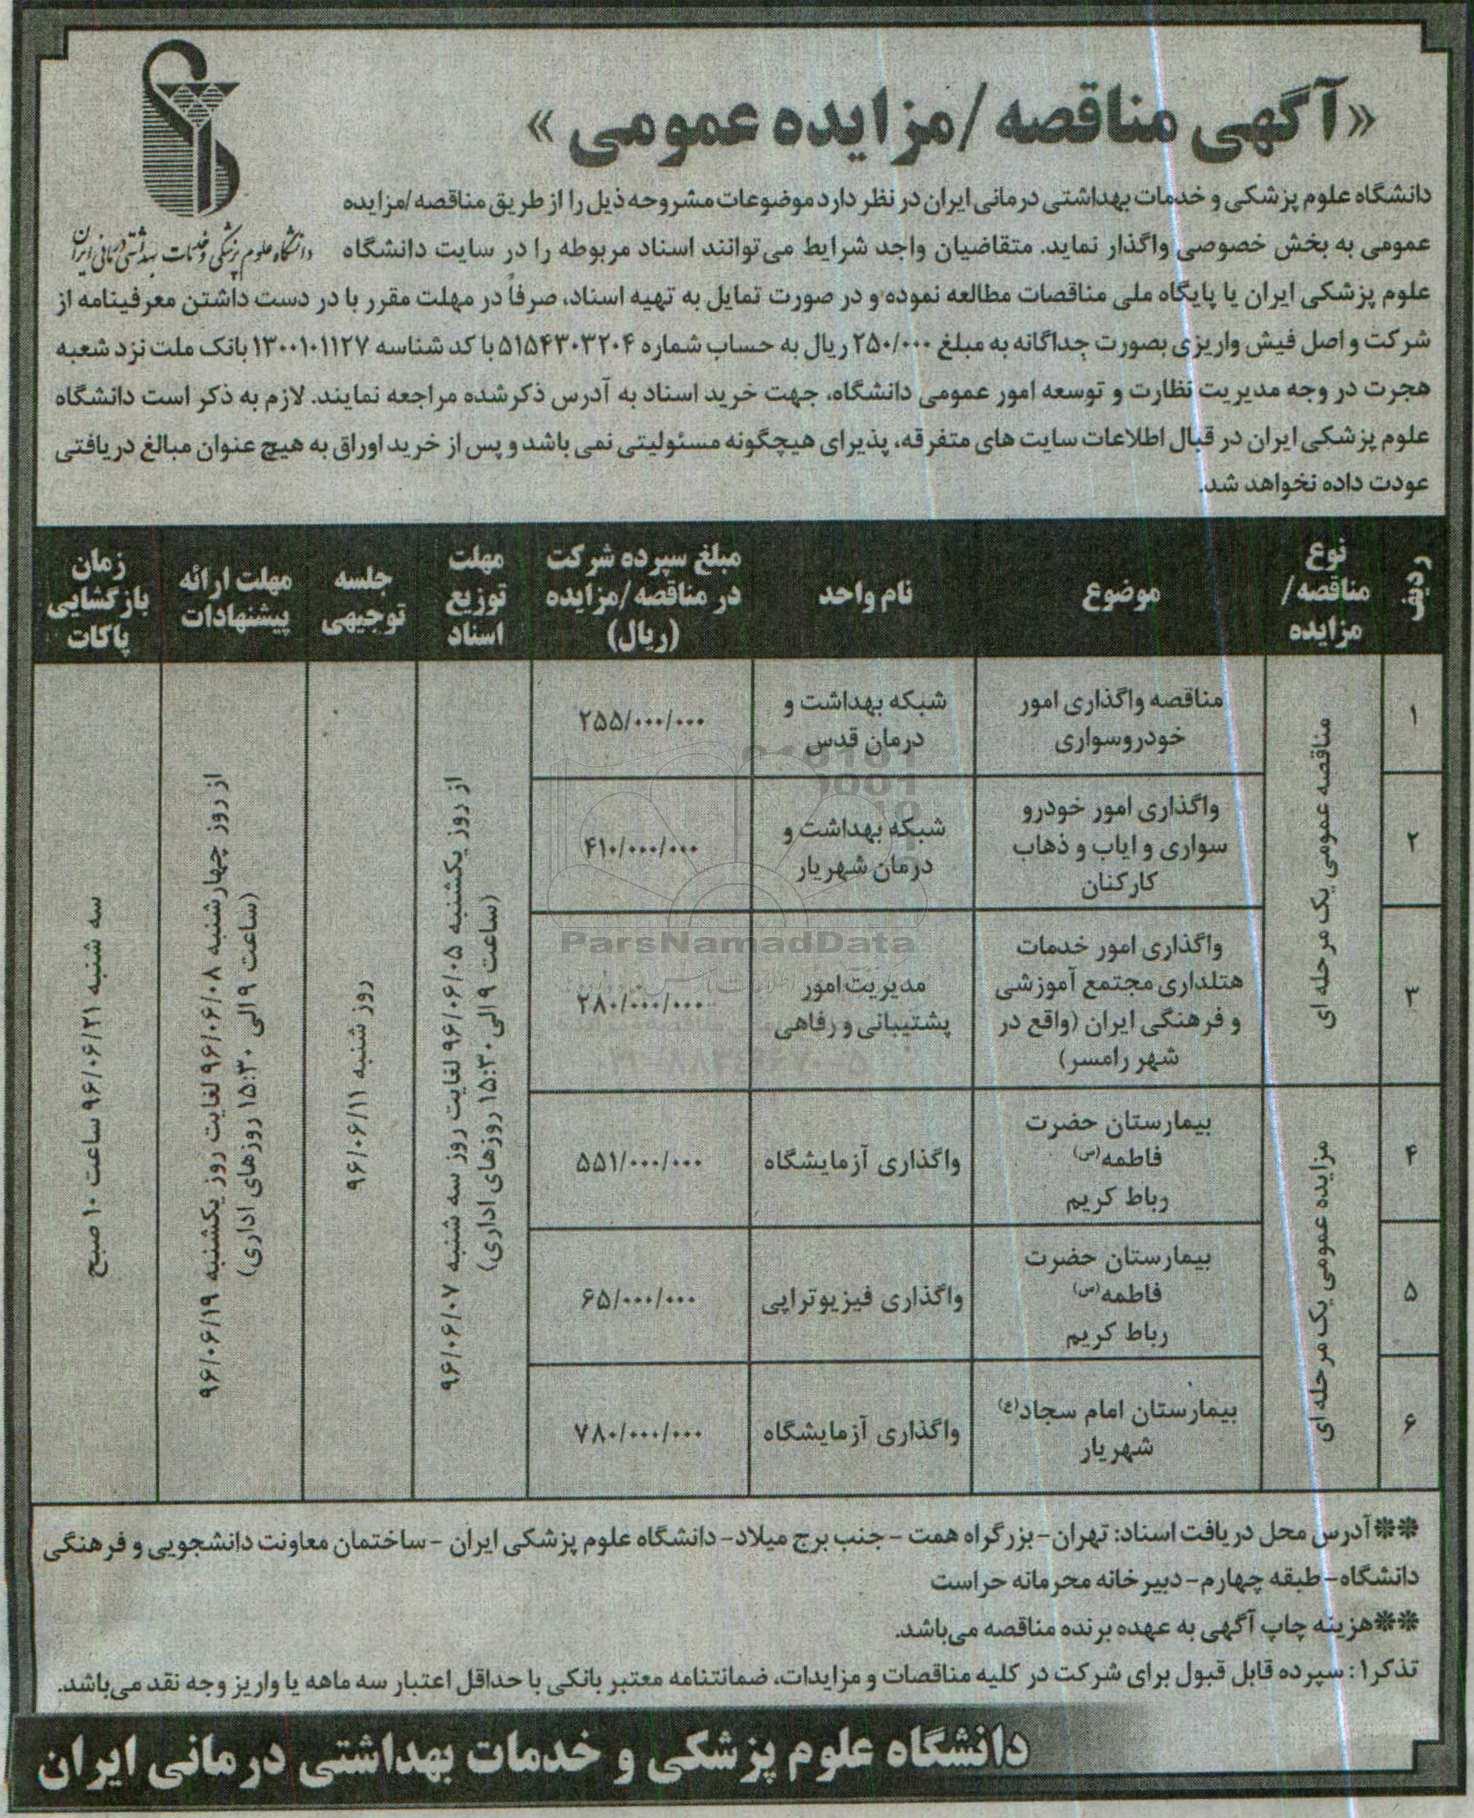 «آگهی مناقصه /مزایده عمومی»
دانشگاه علوم پزشکی و خدمات بهداشتی درمانی ایران
دانشگاه علوم پزشکی و خدمات بهداشتی درمانی ایران در نظر دارد موضوعات مشروحه ذیل را از طریق مناقصه/مزایده
عمومی به بخش خصوصی واگذار نماید. متقاضیان واجد شرایط می‌توانند اسناد مربوطه را در سایت دانشگاه
علوم پزشکی ایران یا پایگاه ملی مناقصات مطالعه نموده و در صورت تمایل به تهیه اسناد، صرفاً در مهلت مقرر با در دست داشتن معرفینامه از
شرکت و اصل فیش واریزی بصورت جداگانه به مبلغ ۲۵۰/۰۰۰ ریال به حساب شماره ۵۱۵۴۳۰۳۲۰۴ با کد شناسه ۱۳۰۰۱۰۱۱۲۷ بانک ملت نزد شعبه
هجرت در وجه مدیریت نظارت و توسعه امور عمومی دانشگاه، جهت خرید اسناد به آدرس ذکرشده مراجعه نمایند. لازم به ذکر است دانشگاه
علوم پزشکی ایران در قبال اطلاعات سایت های متفرقه، پذیرای هیچگونه مسئولیتی نمی باشد و پس از خرید اوراق به هیچ عنوان مبالغ دریافتی
عودت داده نخواهد شد.
ردیف
نوع
مناقصه/
مزایده
موضوع
نام واحد
مبلغ سپرده شرکت
در مناقصه/مزایده
(ریال)
مهلت
توزیع
اسناد
جلسه
توجیهی
مهلت ارائه
پیشنهادات
زمان
بازگشایی
پاکات
۱
مناقصه عمومی یک مرحله ای
مناقصه واگذاری امور
خودروسواری
شبکه بهداشت و
درمان قدس
۲۵۵/۰۰۰/۰۰۰
از روز یکشنبه ۹۶/۰۶/۰۵ لغایت روز سه شنبه ۹۶/۰۶/۰۷
(ساعت ۹ الی ۱۵:۳۰ روزهای اداری)
روز شنبه ۹۶/۰۶/۱۱
از روز چهارشنبه ۹۶/۰۶/۰۸ لغایت روز یکشنبه ۹۶/۰۶/۱۹
(ساعت ۹ الی ۱۵:۳۰ روزهای اداری)
سه شنبه ۹۶/۰۶/۲۱ ساعت ۱۰ صبح
۲
واگذاری امور خودرو
سواری و ایاب و ذهاب
کارکنان
شبکه بهداشت و
درمان شهریار
۴۱۰/۰۰۰/۰۰۰
۳
واگذاری امور خدمات
هتلداری مجتمع آموزشی
و فرهنگی ایران (واقع در
شهر رامسر)
مدیریت امور
پشتیبانی و رفاهی
۲۸۰/۰۰۰/۰۰۰
ParsNamadData
۴
مزایده عمومی یک مرحله ای
بیمارستان حضرت
فاطمه(س)
رباط کریم
واگذاری آزمایشگاه
۵۵۱/۰۰۰/۰۰۰
۵
بیمارستان حضرت
فاطمه(س)
رباط کریم
واگذاری فیزیوتراپی
۶۵/۰۰۰/۰۰۰
۶
بیمارستان امام سجاد(ع)
شهریار
واگذاری آزمایشگاه
۷۸۰/۰۰۰/۰۰۰
** آدرس محل دریافت اسناد: تهران- بزرگراه همت - جنب برج میلاد- دانشگاه علوم پزشکی ایران - ساختمان معاونت دانشجویی و فرهنگی
دانشگاه- طبقه چهارم- دبیرخانه محرمانه حراست
** هزینه چاپ آگهی به عهده برنده مناقصه می‌باشد.
تذکر۱: سپرده قابل قبول برای شرکت در کلیه مناقصات و مزایدات، ضمانتنامه معتبر بانکی با حداقل اعتبار سه ماهه یا واریز وجه نقد می‌باشد.
دانشگاه علوم پزشکی و خدمات بهداشتی درمانی ایران